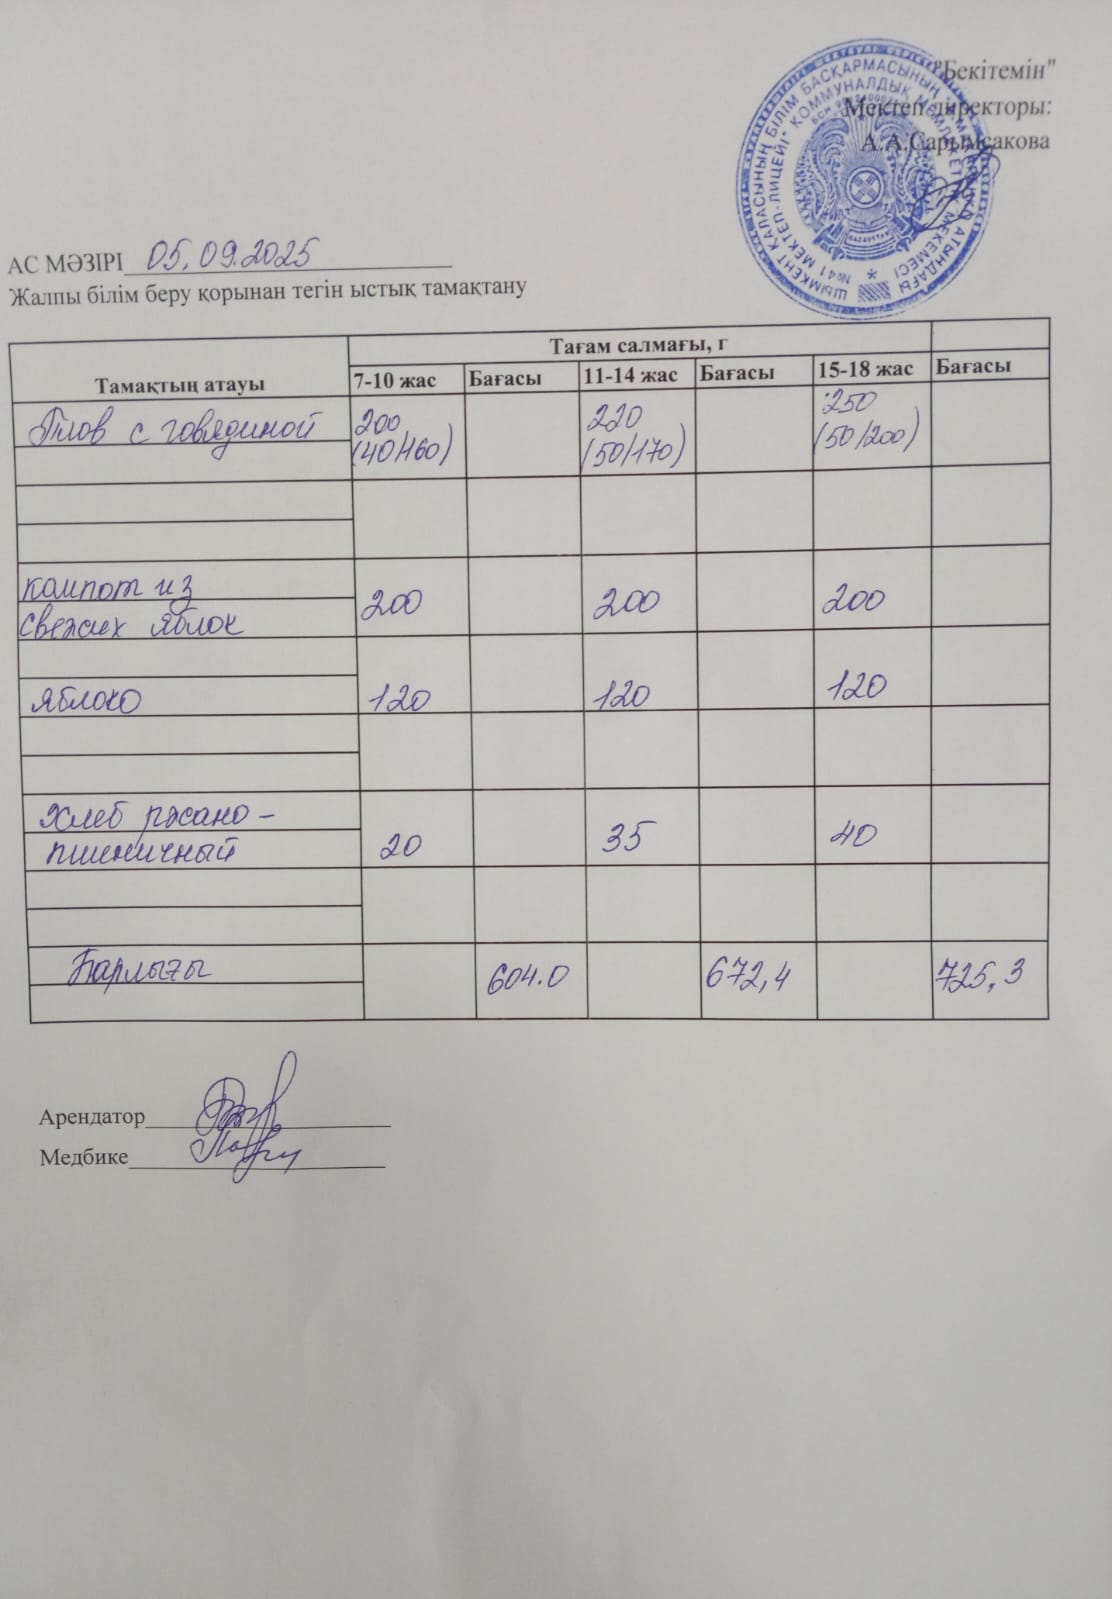 "Бекітемін"
Мектеп директоры:
А.А.Сарымсакова
ШЫМКЕНТ ҚАЛАСЫНЫҢ БІЛІМ БАСҚАРМАСЫНЫҢ АТЫНДАҒЫ
№41 МЕКТЕП-ЛИЦЕЙІ" КОММУНАЛДЫҚ МЕМЛЕКЕТТІК МЕКЕМЕСІ
БСН
QAZAQSTAN
АС МӘЗІРІ 05.09.2025
Жалпы білім беру қорынан тегін ыстық тамақтану
Тағам салмағы, г
Тамақтың атауы 7-10 жас Бағасы 11-14 жас Бағасы 15-18 жас Бағасы
Плов с говядиной 200 220 250
(40/160) (50/170) (50/200)
компот из
свежих яблок 200 200 200
яблоко 120 120 120
Хлеб ржано-
пшеничный 20 35 40
Барлығы 604.0 672,4 725,3
Арендатор
Медбике